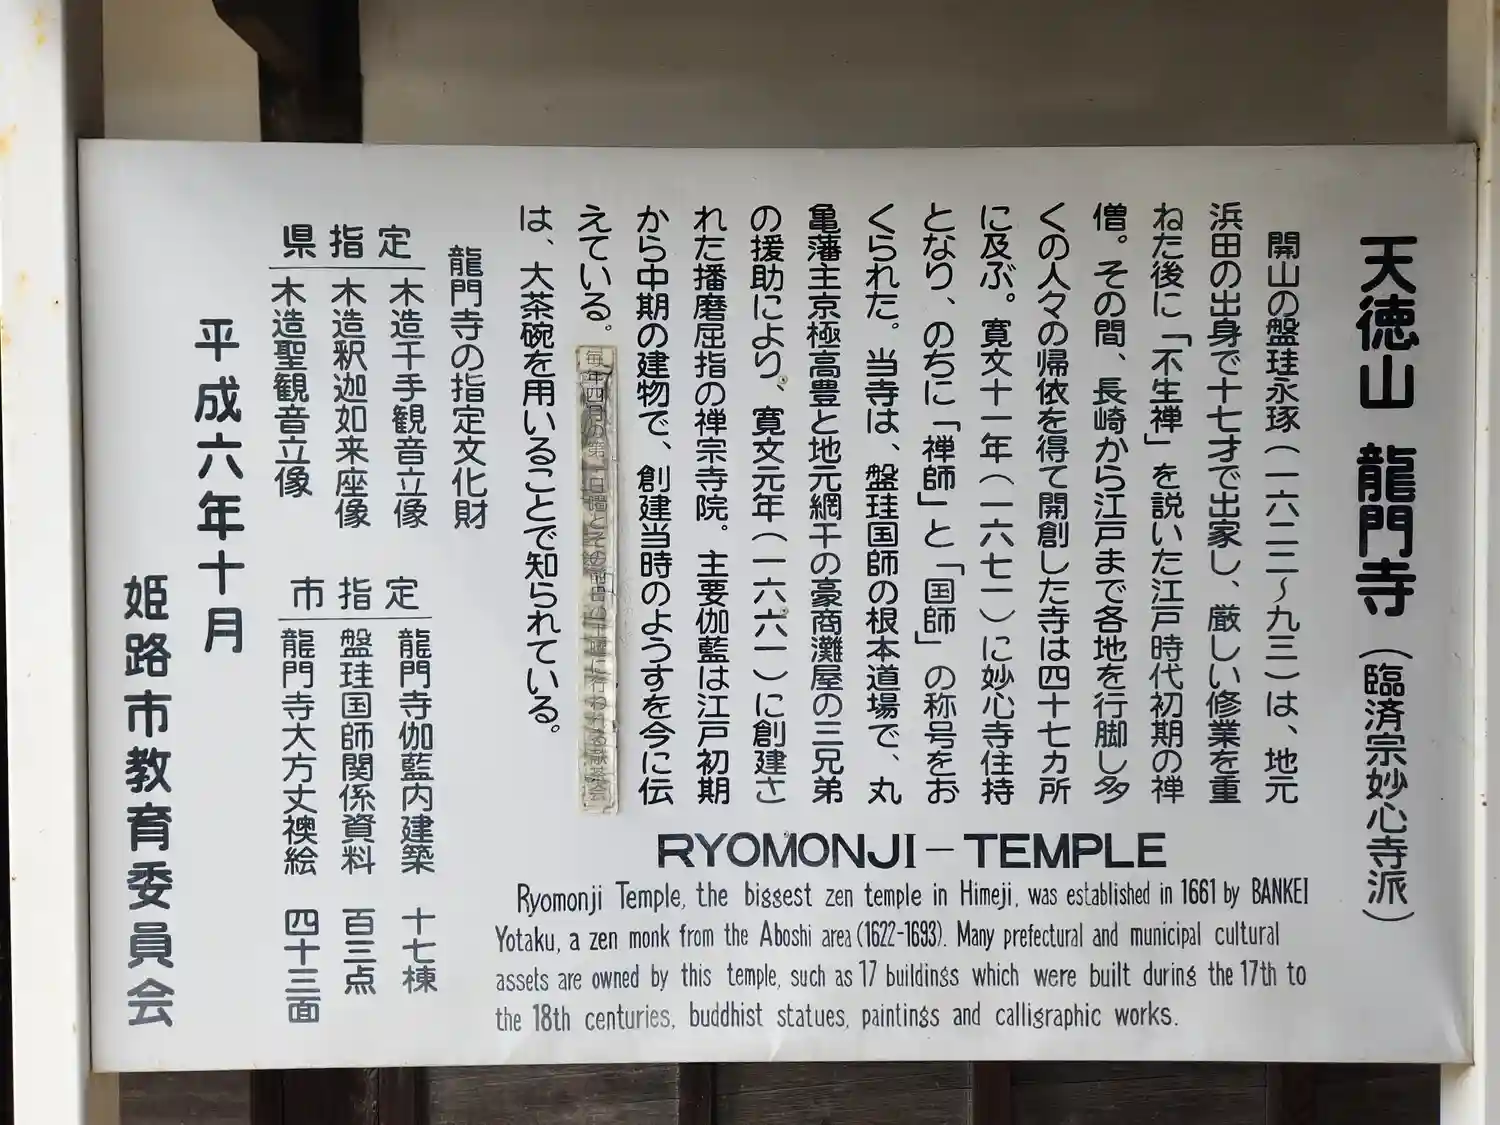 天徳山 龍門寺(臨済宗妙心寺派)
開山の盤珪永琢(一六二二〜九三)は、地元
浜田の出身で十七才で出家し、厳しい修業を重
ねた後に「不生禅」を説いた江戸時代初期の禅
僧。その間、長崎から江戸まで各地を行脚し多
くの人々の帰依を得て開創した寺は四十七ヵ所
に及ぶ。寛文十一年(一六七一)に妙心寺住持
となり、のちに「禅師」と「国師」の称号をお
くられた。当寺は、盤珪国師の根本道場で、丸
亀藩主京極高豊と地元網干の豪商灘屋の三兄弟
の援助により、寛文元年(一六六一)に創建さ
れた播磨屈指の禅宗寺院。主要伽藍は江戸初期
から中期の建物で、創建当時のようすを今に伝
えている。毎年四月の第一日曜とその前日の土曜に行われる献茶会
は、大茶碗を用いることで知られている。
龍門寺の指定文化財
県指定
木造千手観音立像
木造釈迦如来座像
木造聖観音立像
市指定
龍門寺伽藍内建築 十七棟
盤珪国師関係資料 百三点
龍門寺大方丈襖絵 四十三面
平成六年十月
姫路市教育委員会
RYOMONJI-TEMPLE
Ryomonji Temple, the biggest zen temple in Himeji, was established in 1661 by BANKEI
Yotaku, a zen monk from the Aboshi area (1622-1693). Many prefectural and municipal cultural
assets are owned by this temple, such as 17 buildings which were built during the 17th to
the 18th centuries, buddhist statues, paintings and calligraphic works.